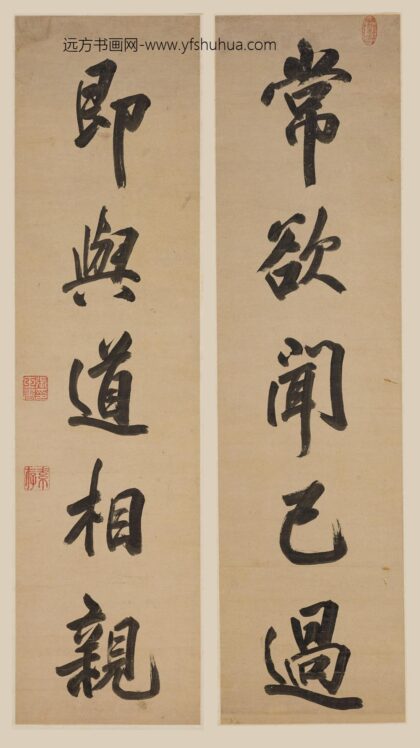 远方书画网-www.yfshuhua.com
常欲闻己過
即與道相親